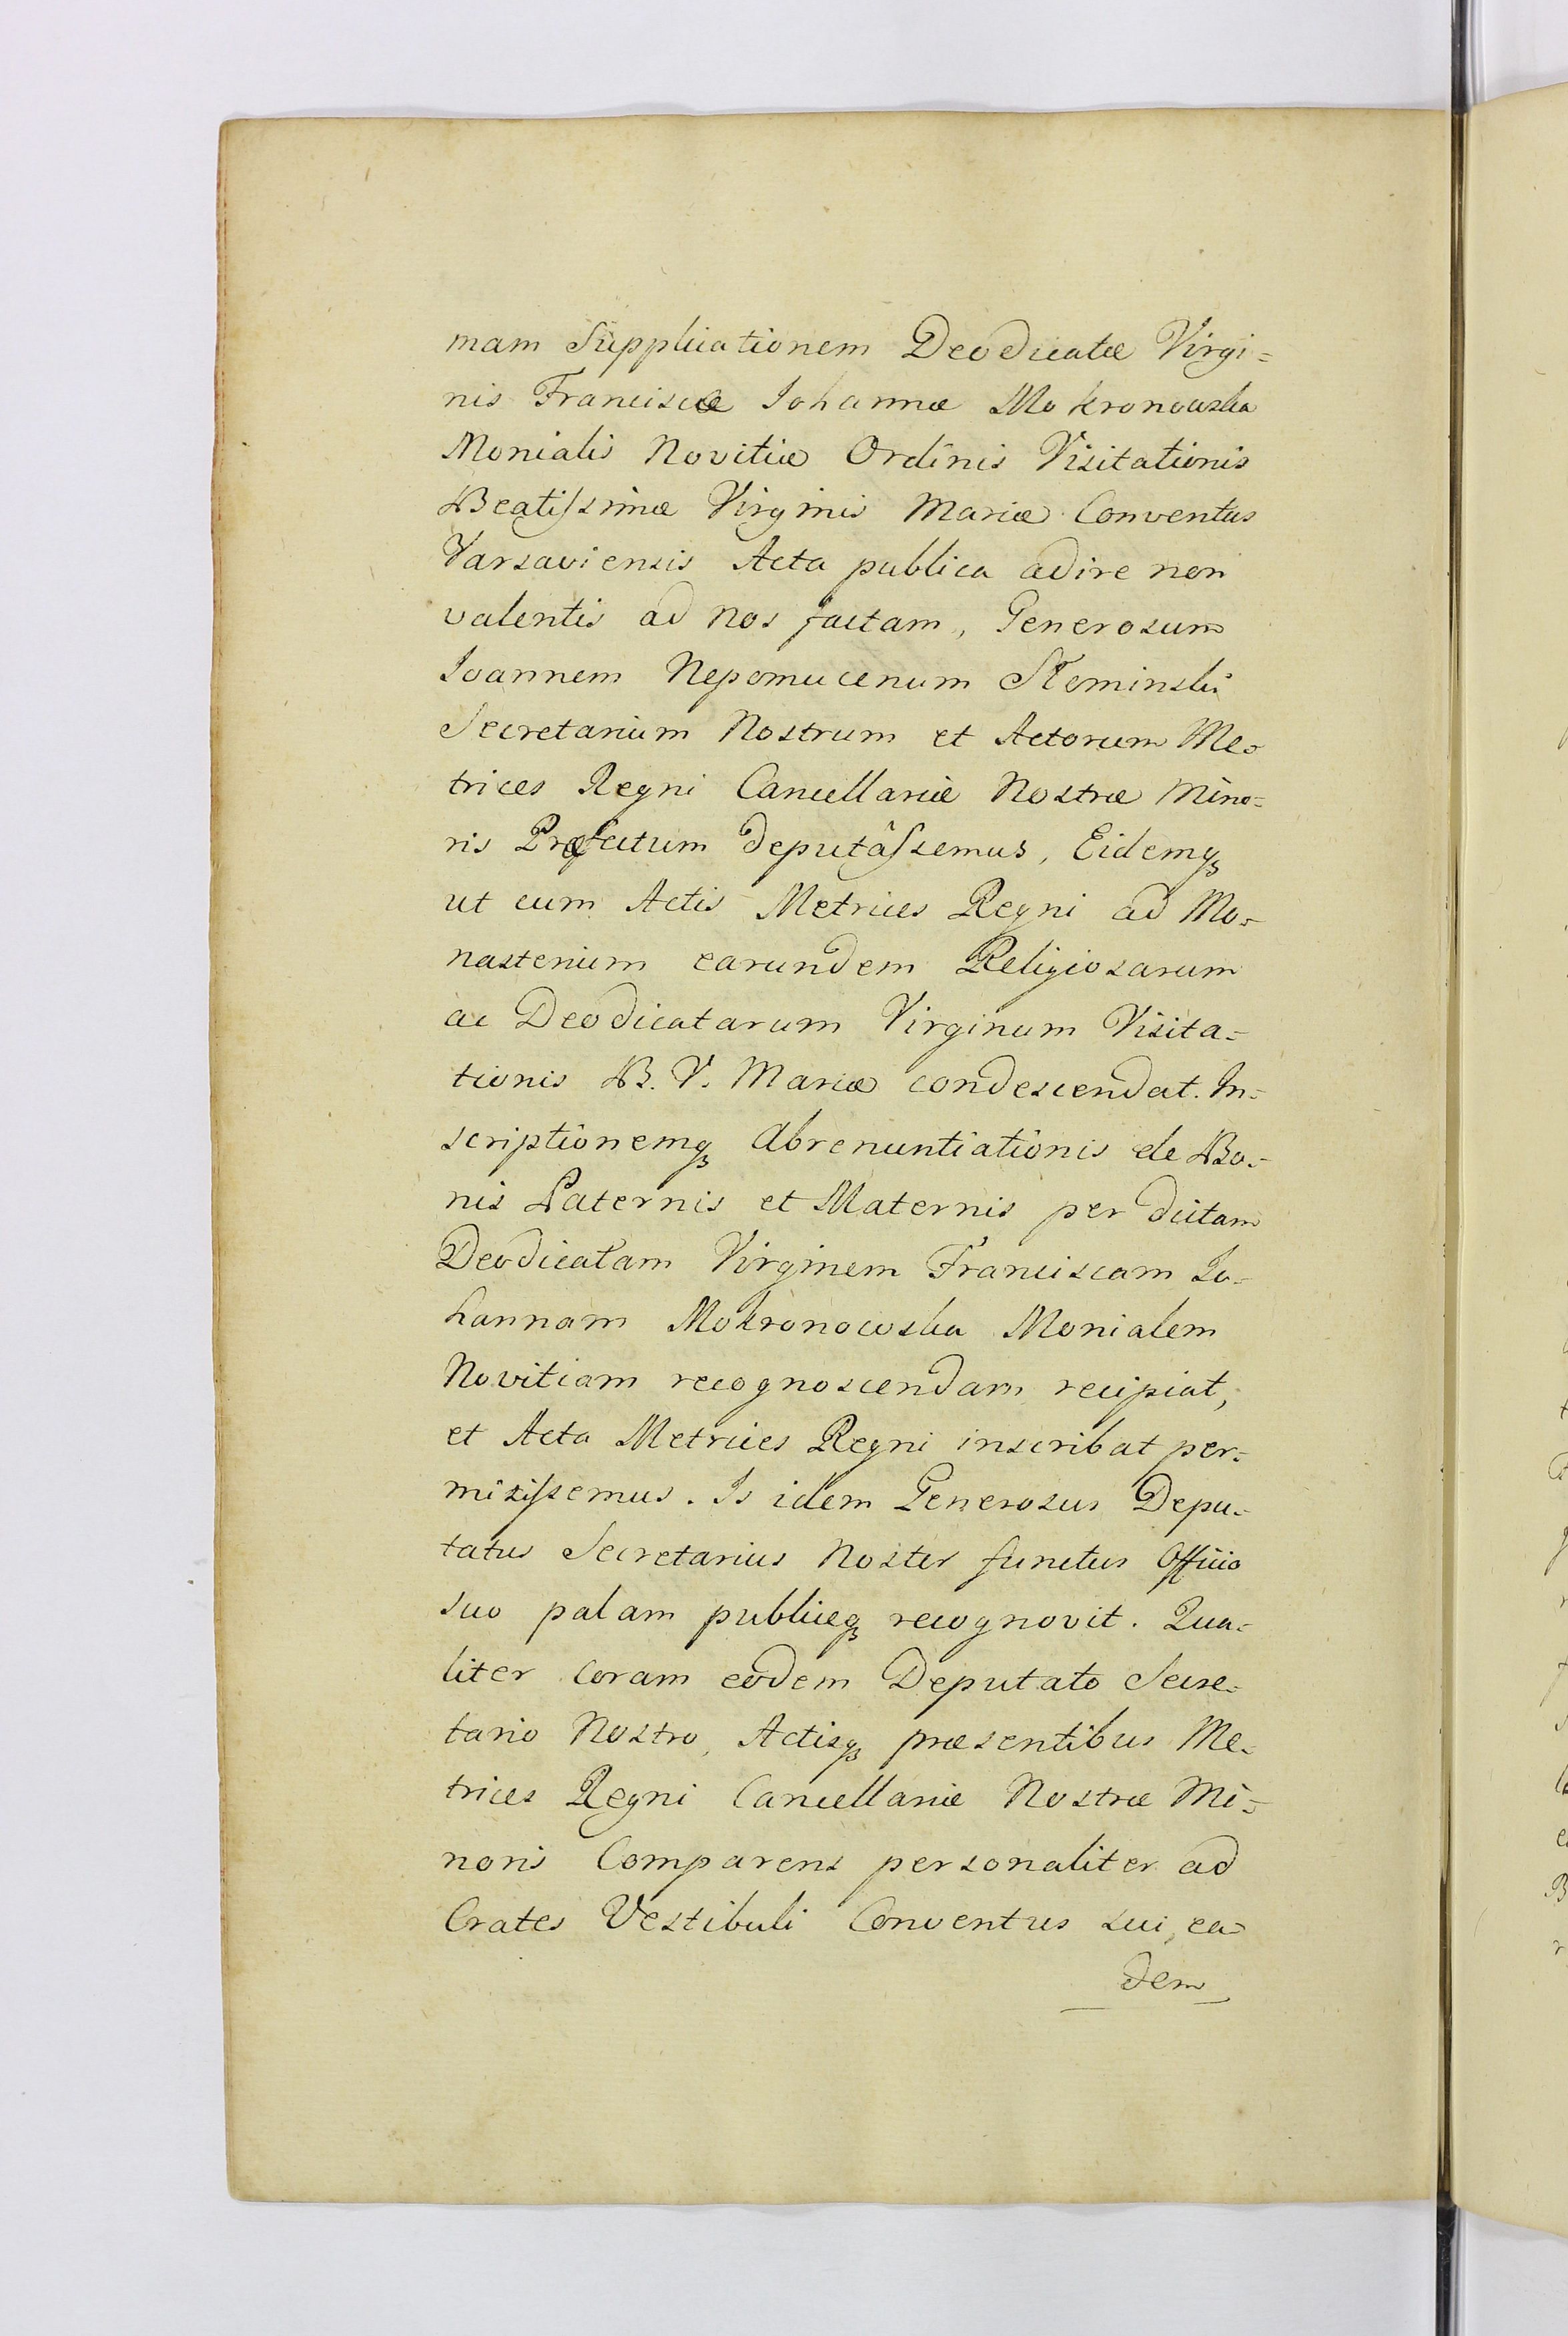 mam Supplicationem Deodicatæ Virgi=
nis Franciscæ Iohannæ Mokronowska
Monialis Novitiæ Ordinis Visitationis
Beatissimæ Virginis Mariæ Conventus
Varsaviensis Acta publica adire non
valentis ad Nos factam, Generosum
Ioannem Nepomucenum Słominski
Secretarium Nostrum et Actorum Me=
trices Regni Cancellariæ Nostræ Mino=
ris Præfectum deputâssemus, Eidemq3
ut cum Actis Metrices Regni ad Mo=
nasterium earundem Religiosarum
ac Deodicatarum Virginum Visita=
tionis B. V. Mariæ condescendat. In=
scriptionemq3 Abrenuntiationis de Bo=
nis Paternis et Maternis per dictam
Deodicatam Virginem Franciscam Io=
hannam Mokronowska Monialem
Novitiam recognoscendam recipiat,
et Acta Metrices Regni inscribat per=
misissemus. Is idem Generosus Depu=
tatus Secretarius Noster functus Officio
suo palam publiceq3 recognovit. Qua=
liter coram eodem Deputato Secre=
tario Nostro, Actisq3 præsentibus Me=
trices Regni Cancellariæ Nostræ Mi=
noris Comparens personaliter ad
Crates Vestibuli Conventus sui, ea
dem